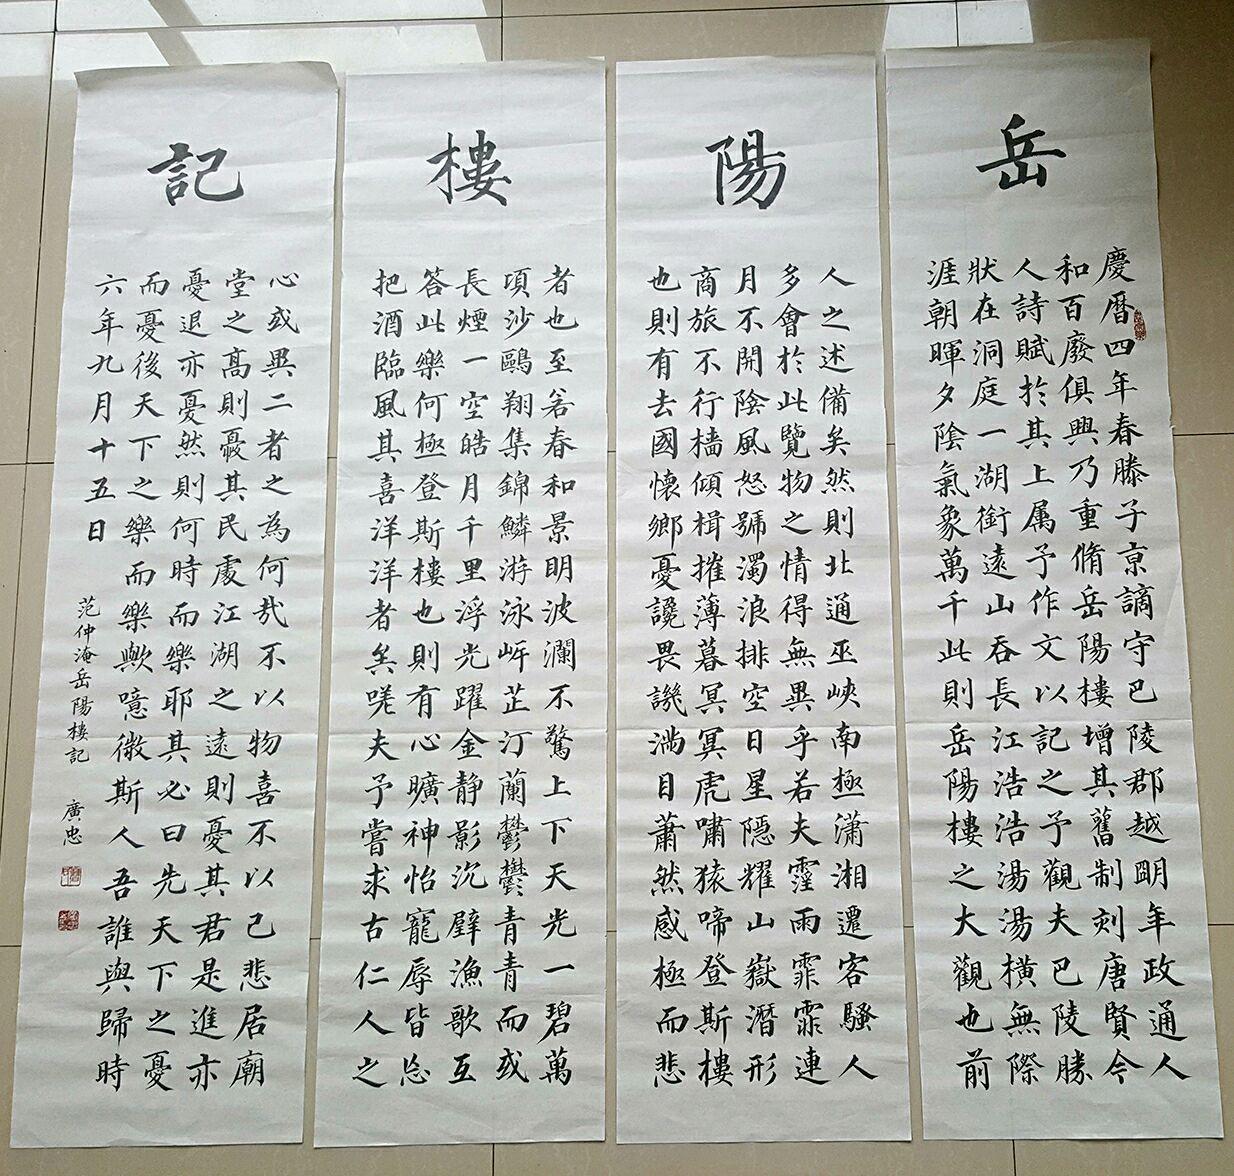 岳
慶暦四年春滕子京謫守巴陵郡越朙年政通人
和百廢俱興乃重脩岳陽樓增其舊制刻唐賢今
人詩賦於其上属予作文以記之予觀夫巴陵勝
狀在洞庭一湖銜遠山吞長江浩浩湯湯橫無際
涯朝暉夕陰氣象萬千此則岳陽樓之大觀也前
陽
人之述備矣然則北通巫峽南極瀟湘遷客騷人
多會於此覽物之情得無異乎若夫霪雨霏霏連
月不開陰風怒號濁浪排空日星隱耀山嶽潛形
商旅不行檣傾楫摧薄暮冥冥虎嘯猿啼登斯樓
也則有去國懷鄉憂讒畏譏滿目蕭然感極而悲
樓
者也至若春和景明波瀾不驚上下天光一碧萬
頃沙鷗翔集錦鱗游泳岸芷汀蘭鬱鬱青青而或
長煙一空皓月千里浮光躍金静影沉璧漁歌互
答此樂何極登斯樓也則有心曠神怡寵辱皆忘
把酒臨風其喜洋洋者矣嗟夫予嘗求古仁人之
記
心或異二者之為何哉不以物喜不以己悲居廟
堂之髙則憂其民處江湖之遠則憂其君是進亦
憂退亦憂然則何時而樂耶其必曰先天下之憂
而憂後天下之樂而樂歟噫微斯人吾誰與歸時
六年九月十五日
范仲淹岳陽樓記 廣忠